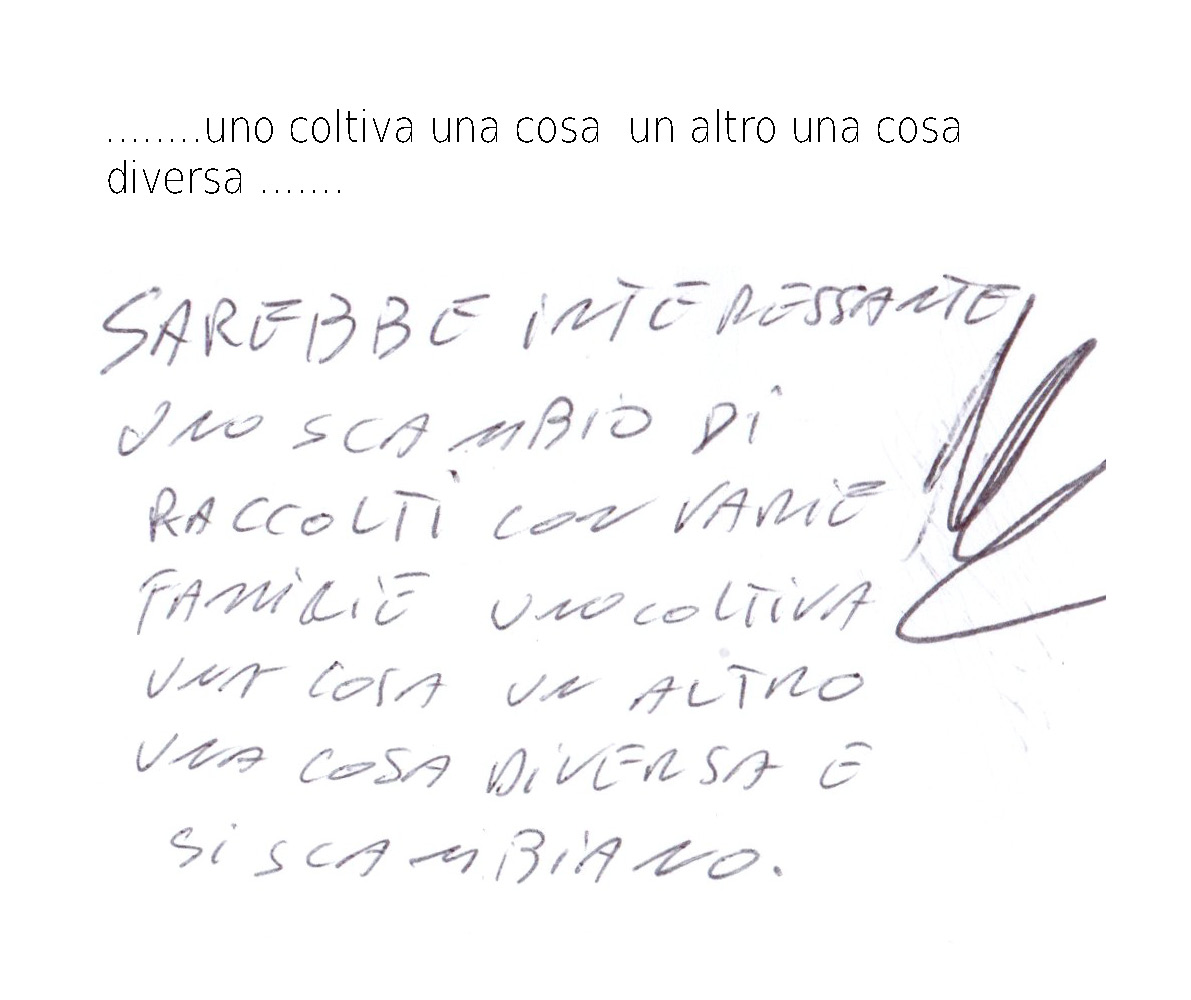 ........uno coltiva una cosa  un altro una cosa
diversa .......
SAREBBE INTERESSANTE
UNO SCAMBIO DI
RACCOLTI CON VARIE
FAMIGLIE UNO COLTIVA
UNA COSA UN ALTRO
UNA COSA DIVERSA E
SI SCAMBIANO.